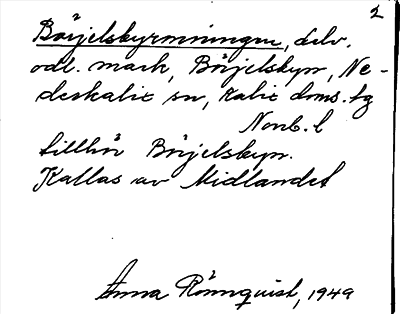 2
Börjelsbyrmningen, delv.
odl. mark, Börjelsbyn, Ne-
derkalix sn, Kalix doms. tg
Norrb. l
tillhör Börjelsbyn.
Kallas av Midlandet
Anna Rönnquist, 1949